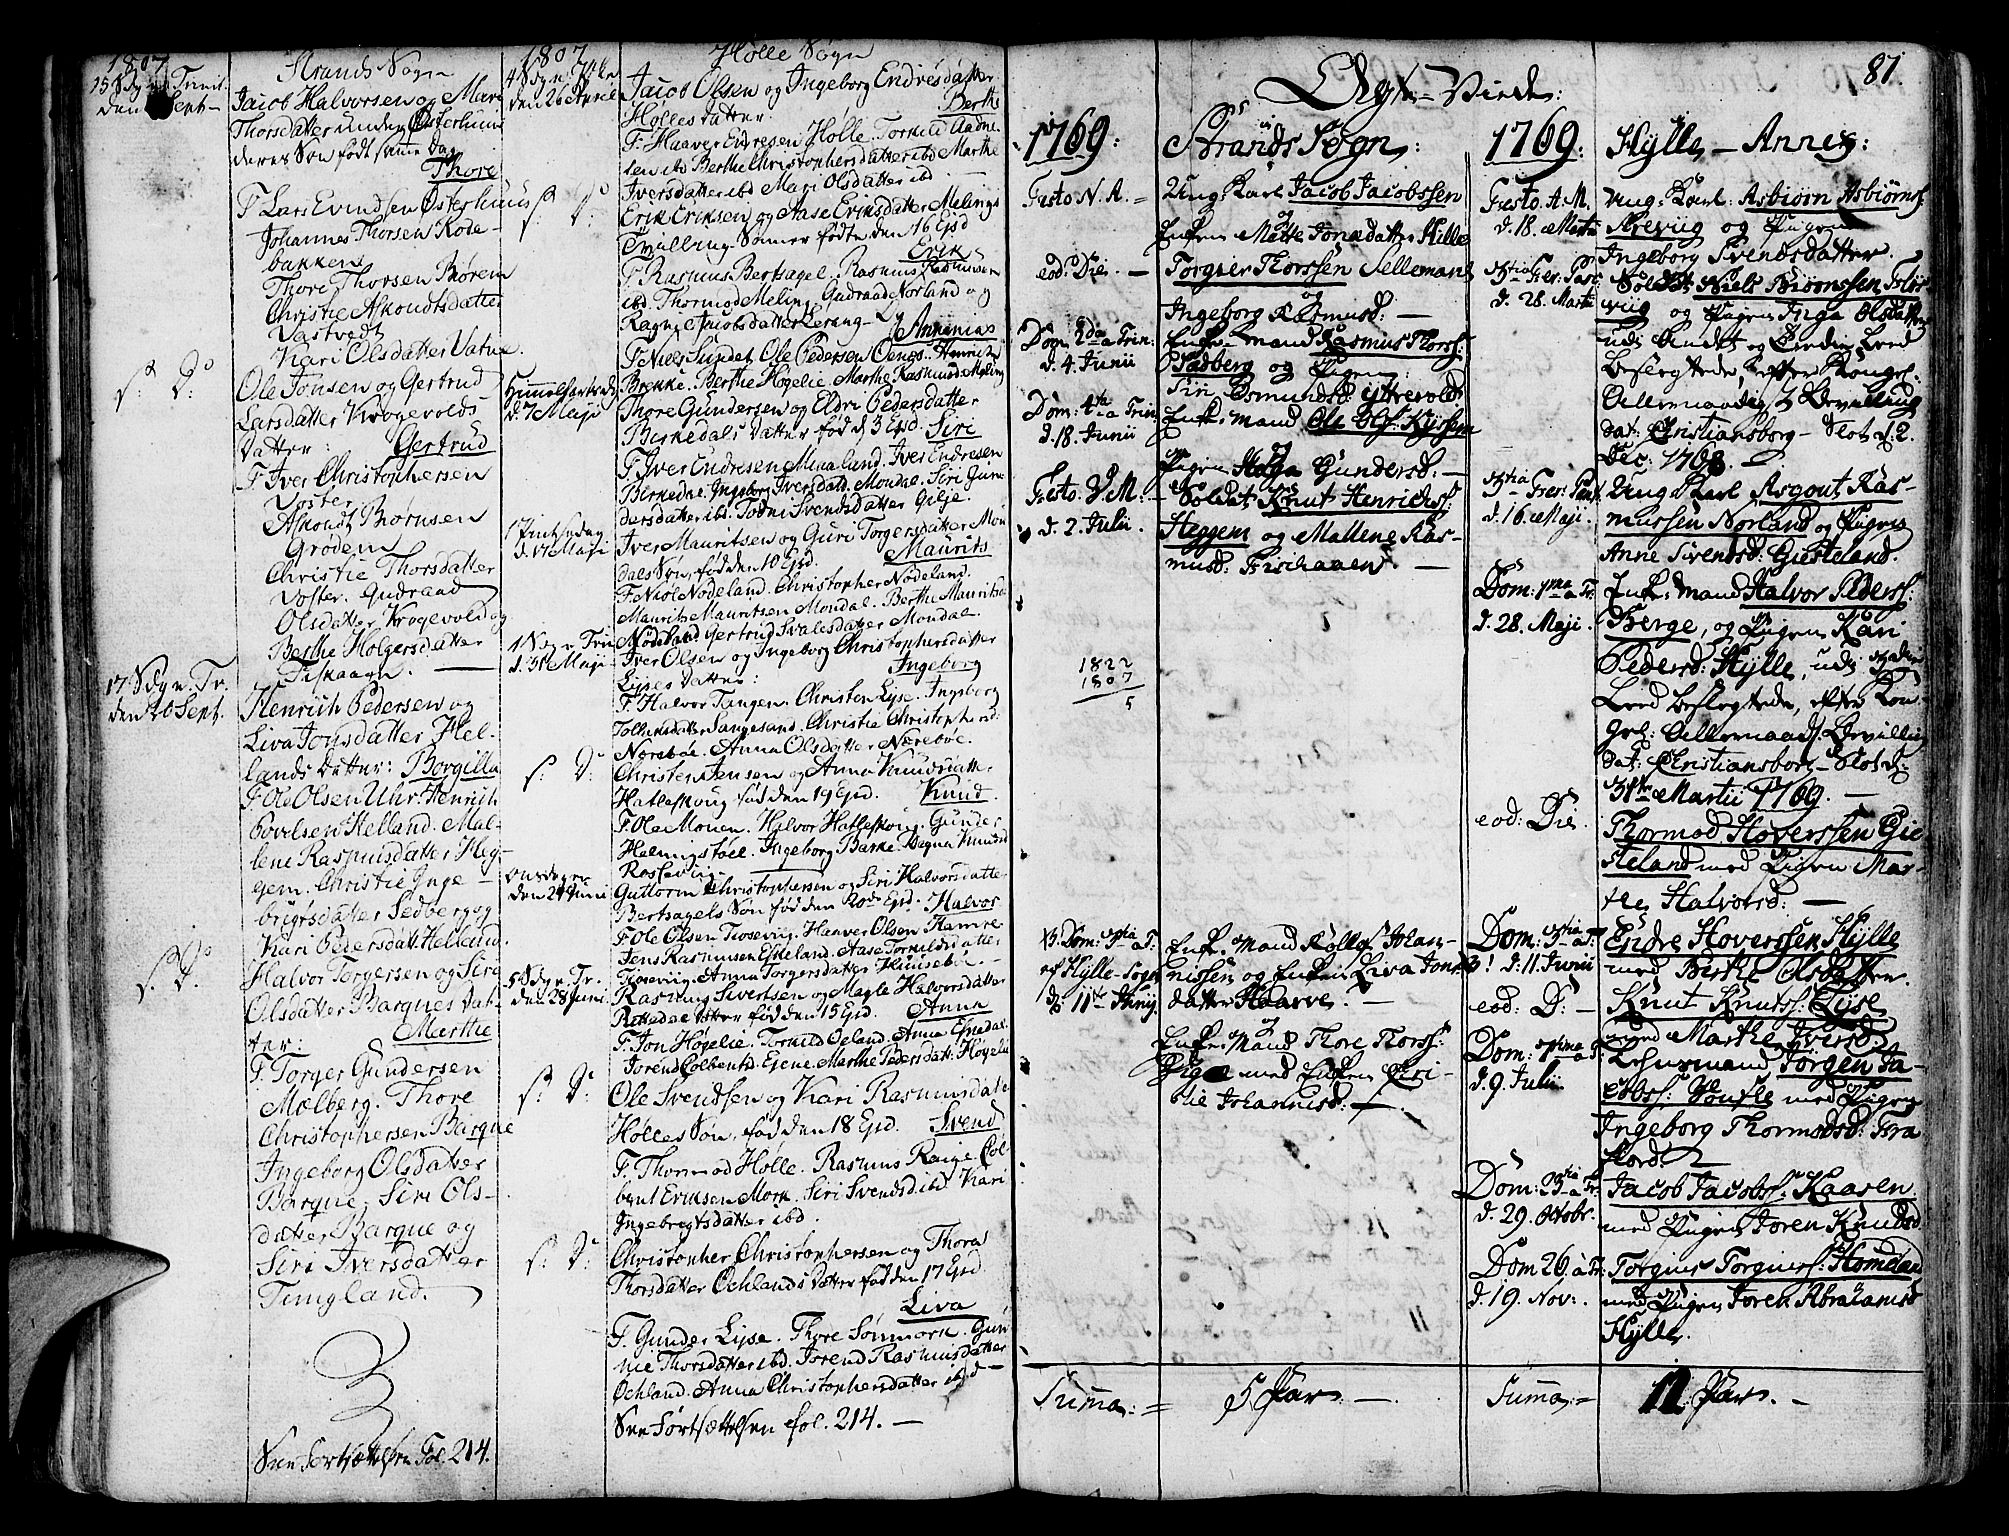 1807
Strands Sogn
15 Søgn. Trinit.
den Sept.
Jacob Halvorsen og Mari
Thorsdatter unden Østerhuus
deres Søn født samme Dag
Thore
F. Lars Evindsen Østerhuus
Johannes Thorsen Rode-
bakken
Thore Thorsen Børen
Christie Asmondsdatter
Vastvedt
Kari Olsdatter Vatne.
s: D:
Ole Jonsen og Gertrud
Larsdatter Krogevolds
Datter: Gertrud
F. Iver Christophersen
Voster
Asmondt Thornsen
Grødem
Christie Thorsdatter
Voster. Gudraad
Olsdatter Krogevold og
Berthe Holgersdatter
Fiskaaen.
17 Søgn. Tr.
den 20 Sept.
Henrich Pedersen og
Liva Jonsdatter Hel-
lands Datter: Borgilla
F. Ole Olsen Uhr. Henrich
Povelsen Helland. Mal-
lene Rasmusdatter Heg-
gem. Christie Inge-
brigtsdatter Sedberg og
Kari Pedersdatt: Helland.
s. D:
Halvor Torgersen og Siri
Olsdatter Barques Dat-
ter: Marthe
F. Torger Gundersen
Mælberg. Thore
Christophersen Barque
Ingeborg Olsdatter
Barque, Siri Ols-
datter Barque og
Siri Iversdatter
Tungland.
See Fortsættelsen Fol. 214.
1807
Holle Søgn
4 Søgn. Paaske
den 26 April
Jacob Olsen og Ingeborg Endresdatter
Holles Datter: Berthe
F. Haaver Endresen Holle. Torkild Aadne-
sen ibd Berthe Christophersdatter ibd Marthe
Iversdatter ibd Mari Olsdatter ibd
s: D:
Erik Eriksen og Aase Eriksdatter Melings
Tvilling-Sønner fødte den 16 Ejsd
Erik
F. Rasmus Bertsagel. Rasmus Rasmussen
ibd. Thormod Meling. Gudraad Norland og
Ragnge Jacobsdatter Lerang. Og Annanias
F. Niels Sundet. Ole Pedersen Oenes. Henrich
Brekke. Berthe Hogelie. Marthe Rasmusd. Meling
Himmelfartsd.
d. 7 Maji
Thore Gundersen og Eldri Pedersdatter
Berkedals Datter fød d 3 Ejsd. Siri
F. Iver Endresen Minaland. Iver Endresen
Berkedne. Ingeborg Iversdatt. Mondal. Siri Gun-
dersdatter ibd. Todni Svendsdatter Gilje.
1 Pintsedag
d. 17 Maji
Iver Mauritsen og Guri Torgersdatter Mon-
dals Søn, fød den 10 Ejsd. Maurits
F. Niøl Nodeland. Christopher Nodeland.
Maurits Mauritsen Mondal. Berthe Mauritsd.
Nodeland Gertrud Svalesdatter Mondal.
1 Søgn. Trin
d. 31 Maji
Iver Olsen og Ingeborg Christophersdatter
Lyses Datter: Ingeborg
F. Halvor Tangen. Christen Lyse. Ingeborg
Tollensdatter Sangesand. Christie Christophersd.
Norebøe. Anna Olsdatter Nærebøe.
s: D:
Christen Jensen og Anna Knudsdatter
Hatleskoug fød den 19 Ejsd. Knud.
F. Ole Mouen. Halvor Hatleskoug. Gunder
Helmigstøel. Ingeborg Barke. Magna Knudsd.
Roslevig.
Onsdagen
den 24 Juni
Guttorm Christophersen og Siri Halvorsdatter
Bertsagels Søn fød den 20de Ejsd. Halvor
F. Ole Olsen Fiosevig. Haaver Olsen Hamre
Jens Rasmusen Eskeland. Aase Torkildsdatter
Fiosevig. Anna Torgersdatter Huusebøe.
5 Søgn. Tr.
den 28 Juni
Rasmus Sivertsen og Magle Halvorsdatter
Rettedal Datter fød den 15 Ejsd. Anna
F. Jon Høgelie. Torkild Oeland. Anna Ejnedal.
Jorend Colbentsd. Ejene. Marthe Pedersdatt: Høgelie
s: D:
Ole Svendsen og Kari Rasmusdatter
Holles Søn, fød den 18 Ejsd. Svend
F. Thormod Holle. Rasmus Raige. Col-
bent Eriksen Mork. Siri Svendsd ibd Kari
Ingebregtsdatter ibd.
s: D:
Christopher Christophersen og Thora
Thorsdatter Ochlands Datter fød den 17 Ejsd
Liva
F. Gunder Lyse. Thore Sønmork. Gun-
nie Thorsdatter ibd. Jorend Rasmusdatter
Ochland. Anna Christophersdatter ibid
See Fortsættelsen fol. 214.
81.
Ægte-Viede:
1769. Strands Sogn:
Festo N. A. Ung-Karl Jacob Jacobssen
og
Enken Mætte Jonsdatter Hille
eod: Die Torgier Thorssen Sellemane
og
Ingeborg Rasmusd:
Dom 2da a Trin:
d. 4. Junii
Enke-mand Rasmus Thorss:
Tadberg og Pigen:
Siri Osmundsd: yttrevold
Dom: 4ta a Trin
d. 18. Junii
Enke-mand Ole Ols: Kyssem
og
Pigen Helga Gundersd:
Festo V. M.
d. 2. Julii.
Soldat Knut Henrichss:
Heggem og Mallene Ras-
musd: Fischaaen
1822
1807
5
Dom: 3tia a T.
Hylle-Sogn
d. 11te Junij
Enke-Mand Rollof Johan-
nissen og Enken Liva Jons-
datter Haarve.
og
Enke-Mand Thore Thorss:
med Enken Siri-
Johannisd:
Summa = 5 Par
1769. Hylle-Annex:
Festo A. M.
d. 18. Martii
Ung-Karl: Asbiørn Asbiørns:
Krevig og Pigen
Ingeborg Svendsdatter
3tia Fer: Pasc
d. 28. Martii
Soldat Niels Biørnssen Fløs-
vig og Pigen Inga Olsdatter
udi Andet og Tredie Leed
Beslegtede, efter Konges:
Allernaadigst Bevilling
dat: Christiansborg-Slot d. 2.
Dec: 1768.
3tia Fer: Pent
d. 16. Maji.
Ung Karl Asgout Ras-
mussen Norland og Pigen
Anne Svendsd: Giesteland.
Dom: 1ma a Tr.
d. 28. Maji.
Enke-mand Halvor Peders:
Berge, og Pigen Kari
Pedersd: Hylle, udi 3die
Leed beslegtede, efter Kon-
gel: Allernaad: Bevilling
dat: Christiansborg-Slot d.
31te Martii 1769.
eod: Die.
Thormod Hoverssen Gie-
steland med Pigen Mar-
the Halvorsd:
Dom: 3tia a T.
d. 11. Junii
Endre Hoverssen Hylle
med Birthe Olsdatter
eod: D:
Knut Knuts: Lyse
med Marthe Iversd:
Dom: 7tima a T.
d. 9. Julii
Huusmand Jørgen Ja-
cobss: Voustle med Pigen
Ingeborg Thormodsd: Fra
Fiord.
Dom: 23tia a Tr:
d. 29. Octobr.
Jacob Jacobs: Kaasen
med Pigen Joren Knudsd
Dom 26 a Tr:
d. 19. Nov:
Torgius Torgiuss: Homeland
med Pigen Joren Abrahamsd
Hylle.
Summa = 12 Par.